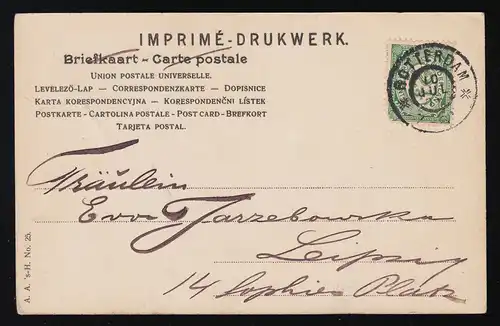 IMPRIMÉ-DRUKWERK.
Briefkaart – Carte postale
UNION POSTALE UNIVERSELLE.
LEVELEZŐ-LAP — CORRESPONDENZKARTE — DOPISNICE
KARTA KORESPONDENCYJNA — KORESPONDENČNÍ LÍSTEK
POSTKARTE - CARTOLINA POSTALE - POST CARD - BREFKORT
TARJETA POSTAL.
ROTTERDAM
10
JUL
Fräulein
Eva Jarzebowska
Leipzig
14 Sophien Platz
A. A. 's-H. No. 25.